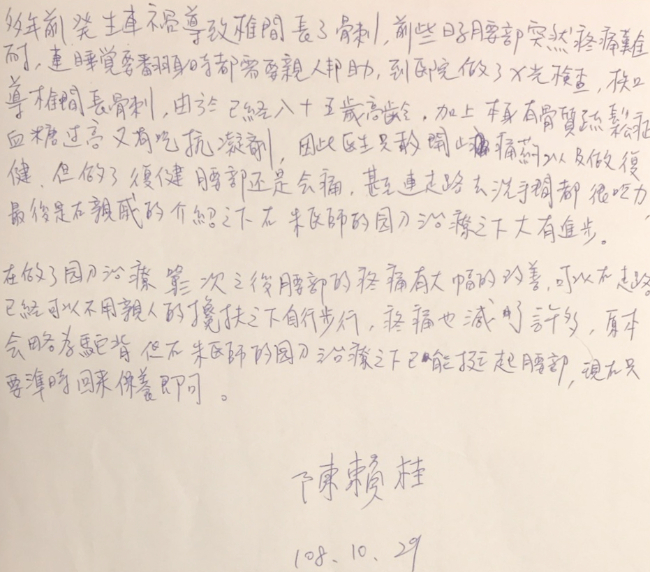 多年前發生車禍導致椎間長了骨刺,前些日子腰部突然疼痛難
耐,連睡覺要翻身時都需要親人幫助,到醫院做了X光檢查,
導椎間長骨刺,由於已經八十五歲高齡,加上本身有骨質疏鬆症
血糖過高又有吃抗凝劑,因此医生只敢開止痛葯以及做復
健,但做了復健腰部还是会痛,甚至連走路去洗手間都很吃力,
最後是在親戚的介紹之下在朱医師的囡刀治療之下大有進步。
在做了囡刀治療第一次之後腰部的疼痛有大幅的改善,可以在走路
已經可以不用親人的攙扶之下自行步行,疼痛也減少了許多,原本
会略為駝背但在朱医師的囡刀治療之下已能挺起腰部,現在只
要準時回來保養即可。
陳賴桂
108.10.29